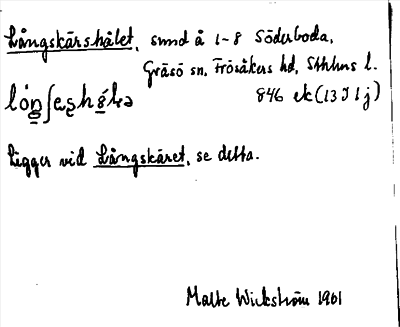 Långskärshålet, sund å 1-8 Söderboda,
Gräsö sn, Frösåkers hd, Sthlms l.
846 ek (13 I 1 j)
Ligger vid Långskäret, se detta.
Malte Wickström 1961